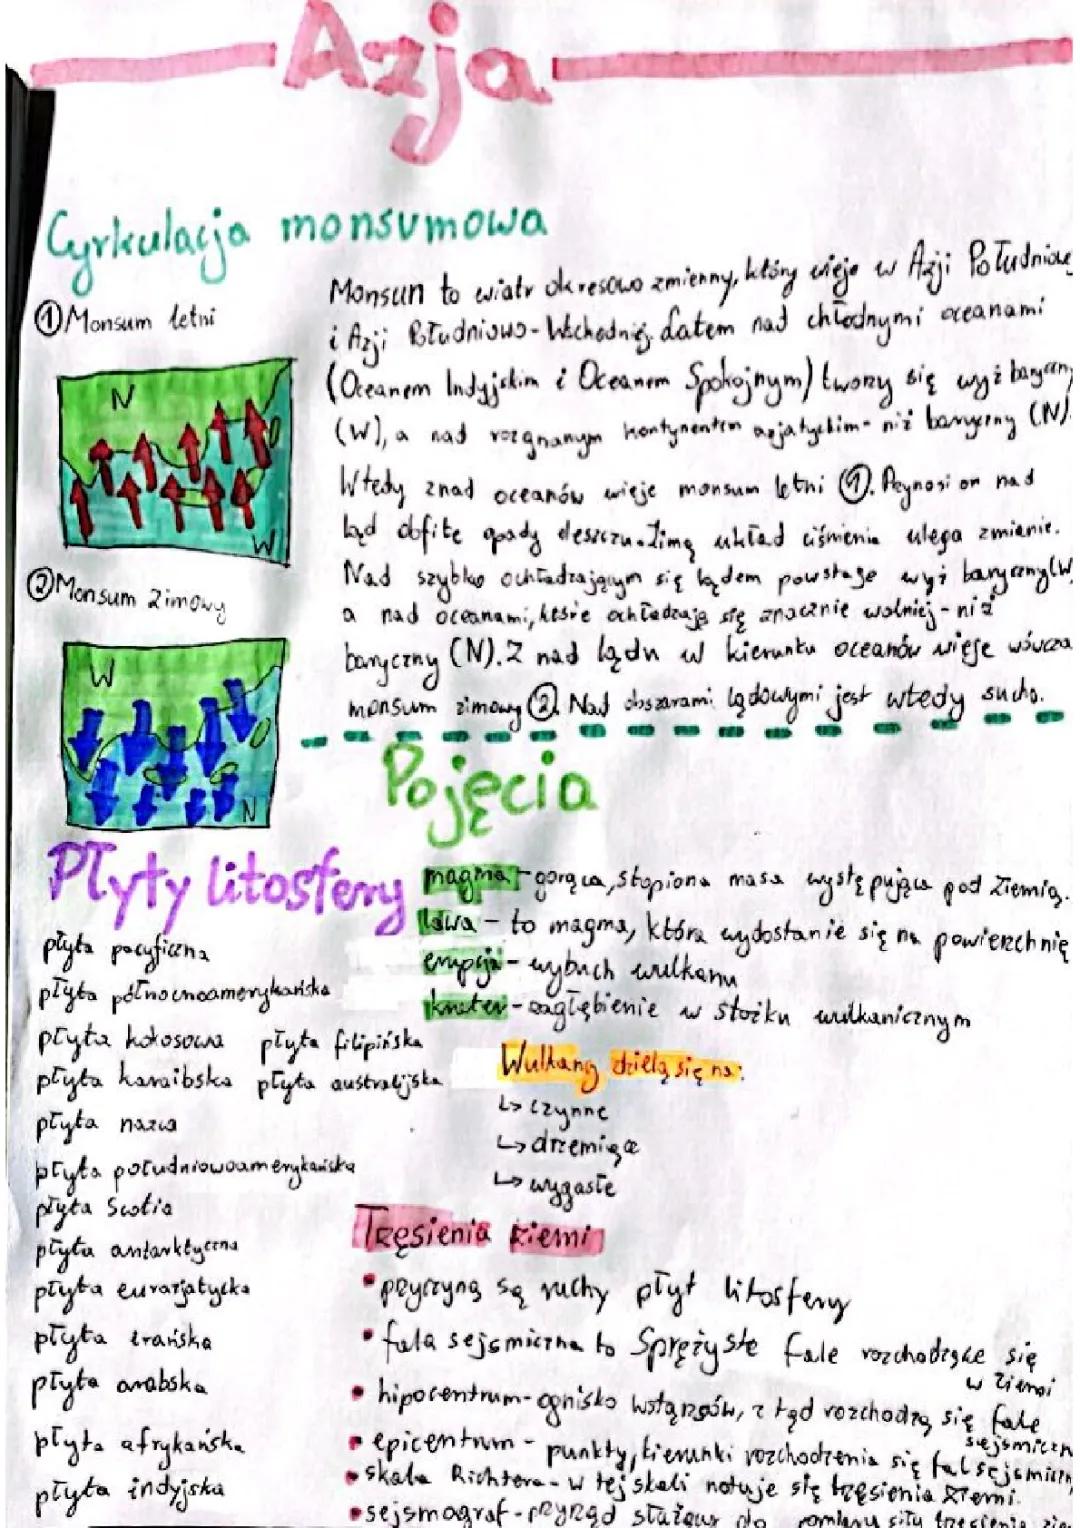 Azja
Cyrkulacja monsumowa
①Monsum letni
N
W
②Monsum zimowy
W
N
Monsun to wiatr okresowo zmienny, który wieje w Azji Południowej
i Azji Południowo-Wschodniej. Latem nad chłodnymi oceanami
(Oceanem Indyjskim i Oceanem Spokojnym) tworzy się wyż baryczny
(W), a nad rozgrzanym kontynentem azjatyckim- niż baryczny (N).
Wtedy znad oceanów wieje monsum letni ①. Przynosi on nad
ląd obfite opady deszczu. Zimą układ ciśnienia ulega zmianie.
Nad szybko ochładzającym się lądem powstaje wyż baryczny (W
a nad oceanami, które ochładzają się znacznie wolniej - niż
baryczny (N). Z nad lądu w kierunku oceanów wieje wówcza
monsum zimowy ②. Nad obszarami lądowymi jest wtedy sucho.
Pojęcia
magma - gorąca, stopiona masa występująca pod Ziemią.
lawa - to magma, która wydostanie się na powierzchnię
erupcja - wybuch wulkanu
krater - zagłębienie w stożku wulkanicznym
Płyty litosfery
płyta pacyficzna
płyta północnoamerykańska
płyta kokosowa płyta filipińska
płyta karaibska płyta australijska
płyta nazca
płyta południowoamerykańska
płyta Scotia
płyta antarktyczna
płyta eurazjatycka
płyta irańska
płyta arabska
płyta afrykańska
płyta indyjska
Wulkany dzielą się na:
↳ czynne
↳ drzemiące
↳ wygasłe
Trzęsienia ziemi
• przyczyną są ruchy płyt litosfery
• fala sejsmiczna to sprężyste fale rozchodzące się
w Ziemi
• hipocentrum - ognisko wstrząsów, z kąd rozchodzą się fale
sejsmiczn
• epicentrum - punkty, kierunki rozchodzenia się fal sejsmiczn
• skala Richtera - w tej skali notuje się trzęsienia Ziemi.
• sejsmograf - przyrząd służący do pomiaru siły trzęsienia zie